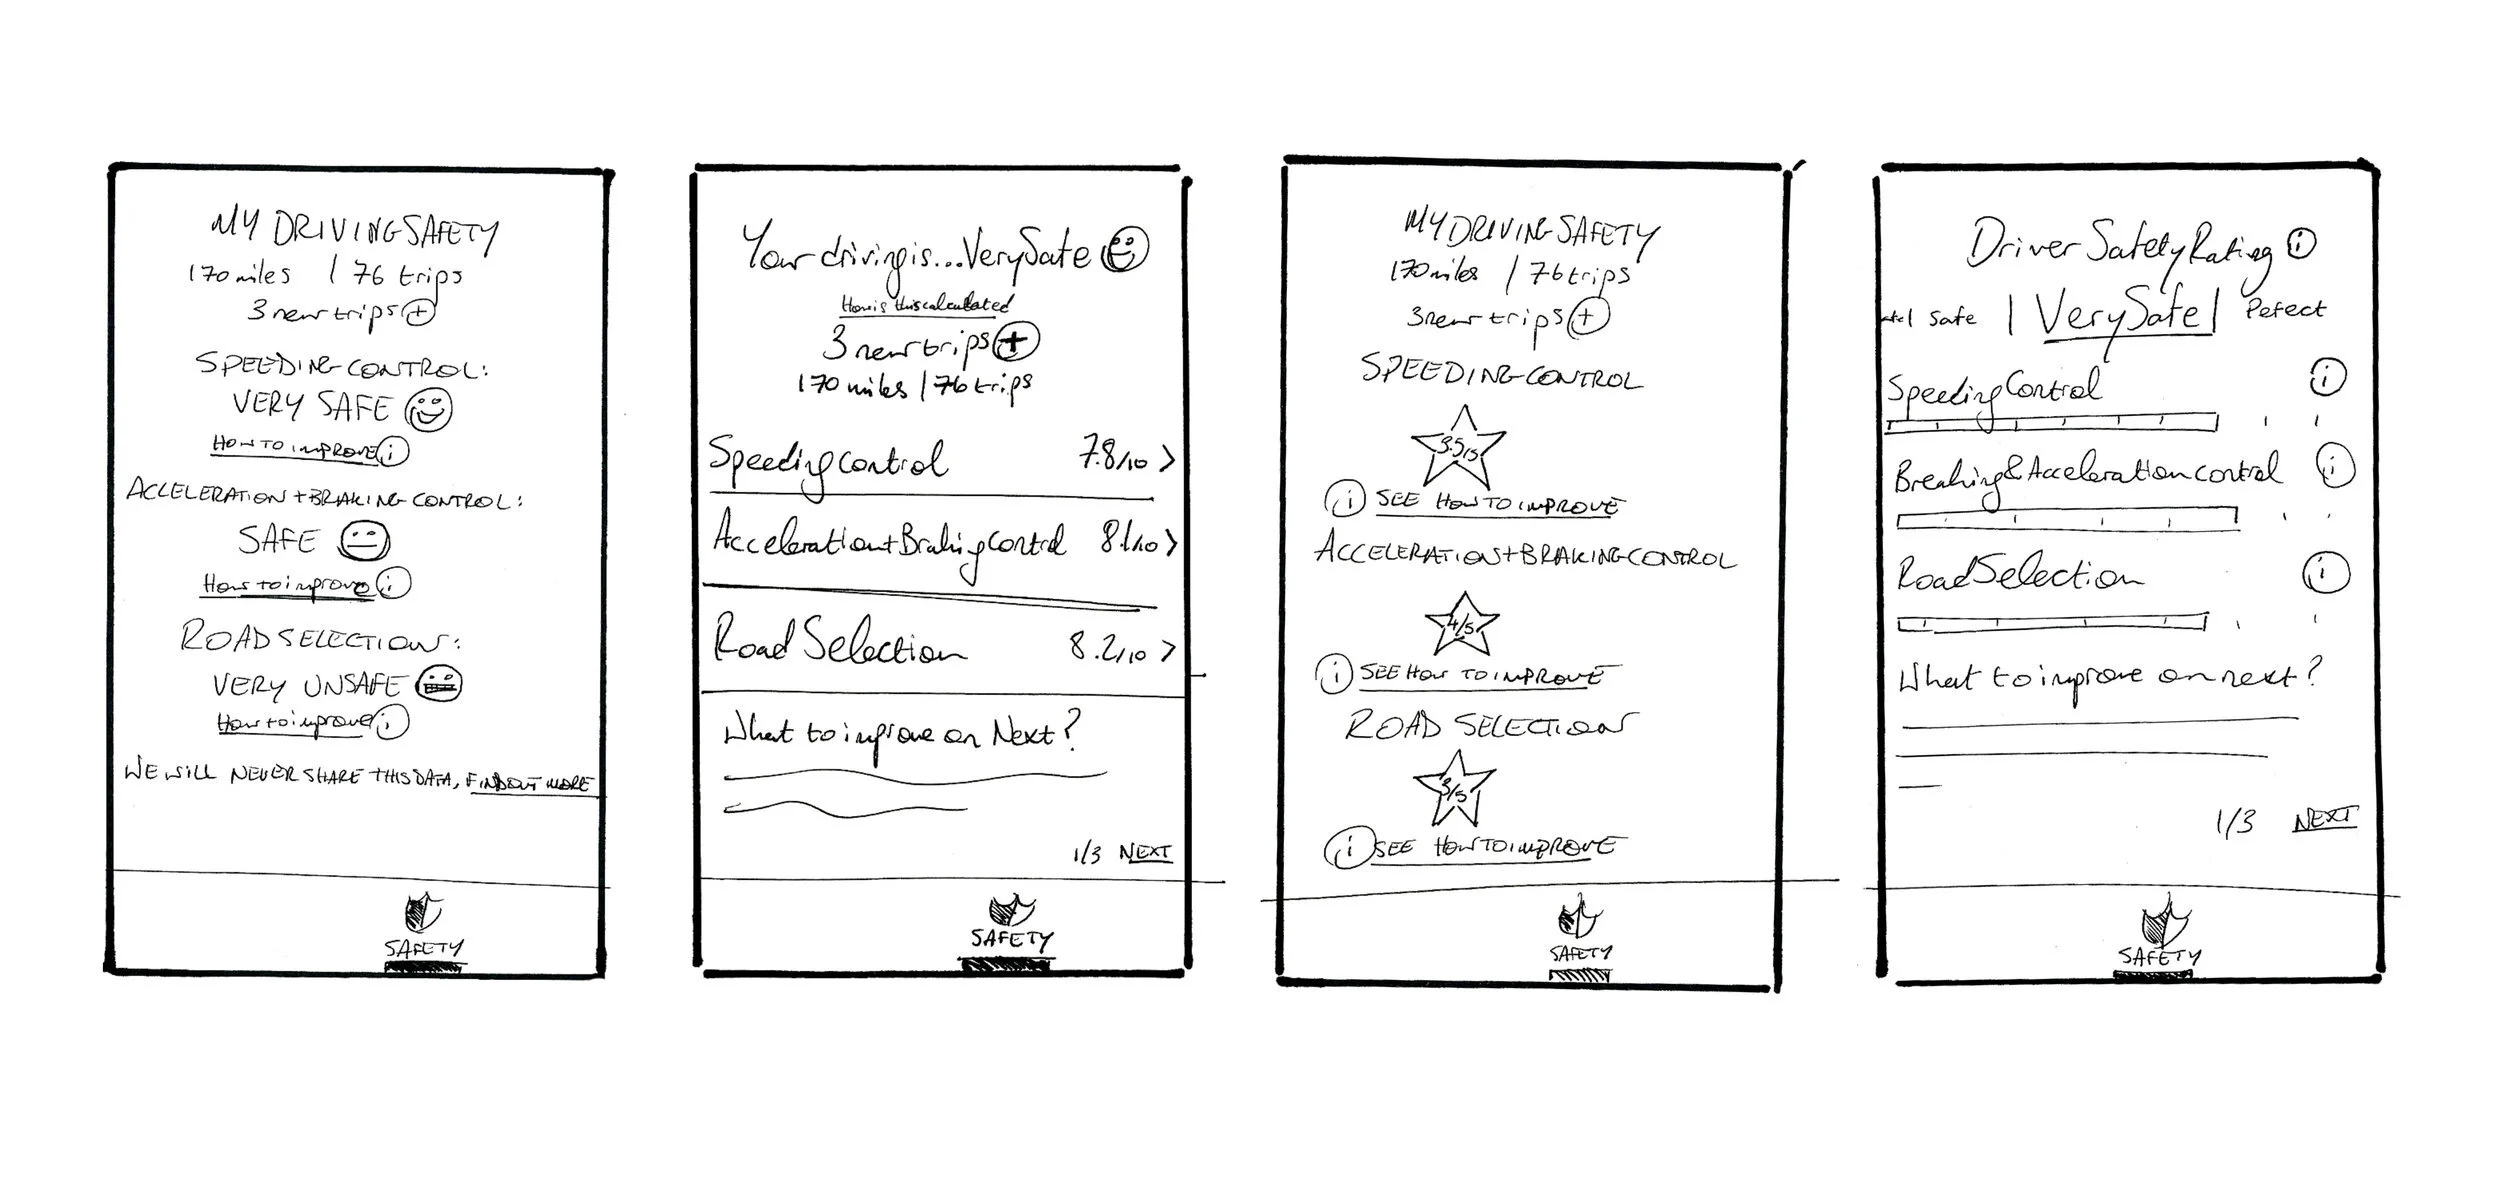 MY DRIVING SAFETY
170 miles / 76 trips
3 new trips +
SPEEDING CONTROL:
VERY SAFE
HOW TO IMPROVE i
ACCELERATION + BRAKING CONTROL:
SAFE
How to improve i
ROAD SELECTION:
VERY UNSAFE
How to improve i
WE WILL NEVER SHARE THIS DATA, FIND OUT MORE
SAFETY
Your driving is...Very Safe
How is this calculated
3 new trips +
170 miles / 76 trips
Speeding control 7.8/10 >
Acceleration + Braking Control 8.1/10 >
Road Selection 8.2/10 >
What to improve on Next?
1/3 NEXT
SAFETY
MY DRIVING SAFETY
170 miles / 76 trips
3 new trips +
SPEEDING CONTROL
3.5/5
i SEE HOW TO IMPROVE
ACCELERATION + BRAKING CONTROL
4/5
i SEE HOW TO IMPROVE
ROAD SELECTION
3/5
i SEE HOW TO IMPROVE
SAFETY
Driver Safety Rating i
Safe | Very Safe | Pefect
Speeding Control i
Breaking & Acceleration control i
Road Selection i
What to improve on next?
1/3 NEXT
SAFETY